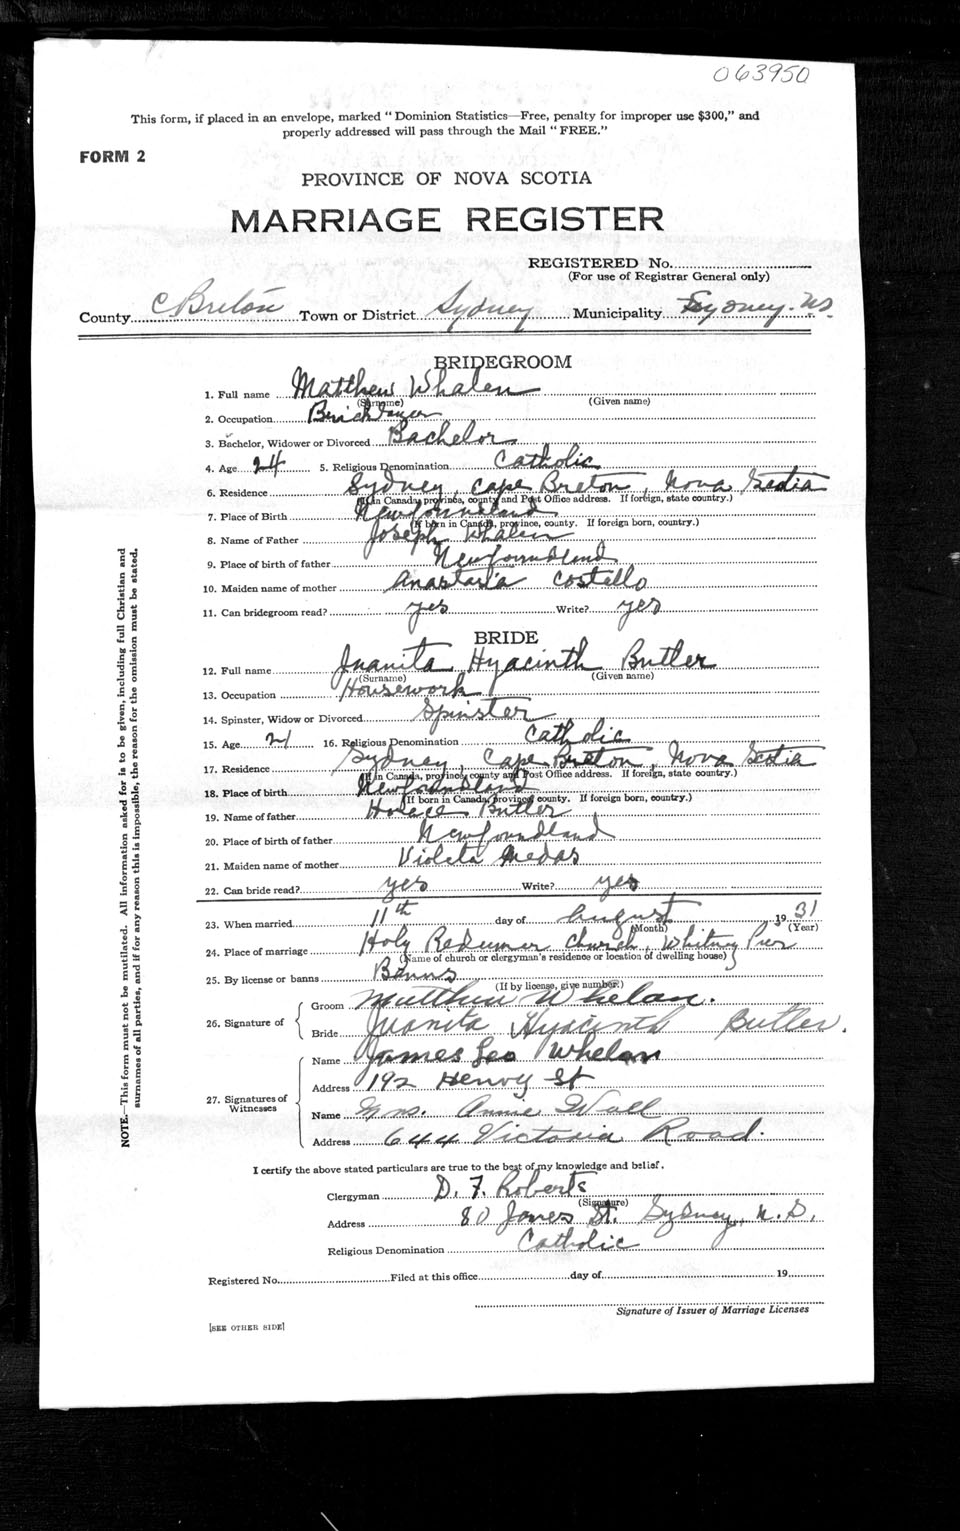 063950
This form, if placed in an envelope, marked "Dominion Statistics—Free, penalty for improper use $300," and
properly addressed will pass through the Mail "FREE."
FORM 2
PROVINCE OF NOVA SCOTIA
MARRIAGE REGISTER
REGISTERED No.
(For use of Registrar General only)
County C Breton Town or District Sydney Municipality Sydney. NS.
BRIDEGROOM
1. Full name Matthew Whalen
(Surname) (Given name)
2. Occupation Bricklayer
3. Bachelor, Widower or Divorced Bachelor
4. Age 24 5. Religious Denomination Catholic
6. Residence Sydney, Cape Breton, Nova Scotia
(If in Canada, province, county and Post Office address. If foreign, state country.)
7. Place of Birth Newfoundland
(If born in Canada, province, county. If foreign born, country.)
8. Name of Father Joseph Whalen
9. Place of birth of father Newfoundland
10. Maiden name of mother Anastasia Costello
11. Can bridegroom read? yes Write? yes
BRIDE
12. Full name Juanita Hyacinth Butler
(Surname) (Given name)
13. Occupation Housework
14. Spinster, Widow or Divorced Spinster
15. Age 21 16. Religious Denomination Catholic
17. Residence Sydney, Cape Breton, Nova Scotia
(If in Canada, province, county and Post Office address. If foreign, state country.)
18. Place of birth Newfoundland
(If born in Canada, province, county. If foreign born, country.)
19. Name of father Horace Butler
20. Place of birth of father Newfoundland
21. Maiden name of mother Violeta Medas
22. Can bride read? yes Write? yes
23. When married 11th day of August 1931
(Month) (Year)
24. Place of marriage Holy Redeemer Church, Whitney Pier
(Name of church or clergyman's residence or location of dwelling house)
25. By license or banns Banns
(If by license, give number.)
26. Signature of
Groom Matthew Whelan.
Bride Juanita Hyacinth Butler.
27. Signatures of Witnesses
Name James Leo Whelan
Address 192 Henry St
Name Mrs. Annie Wall
Address 644 Victoria Road.
I certify the above stated particulars are true to the best of my knowledge and belief.
Clergyman D. F. Roberts
(Signature)
Address 80 James St. Sydney, N.S.
Religious Denomination Catholic
Registered No. Filed at this office day of 19
Signature of Issuer of Marriage Licenses
[SEE OTHER SIDE]
NOTE.—This form must not be mutilated. All information asked for is to be given, including full Christian and
surnames of all parties, and if for any reason this is impossible, the reason for the omission must be stated.